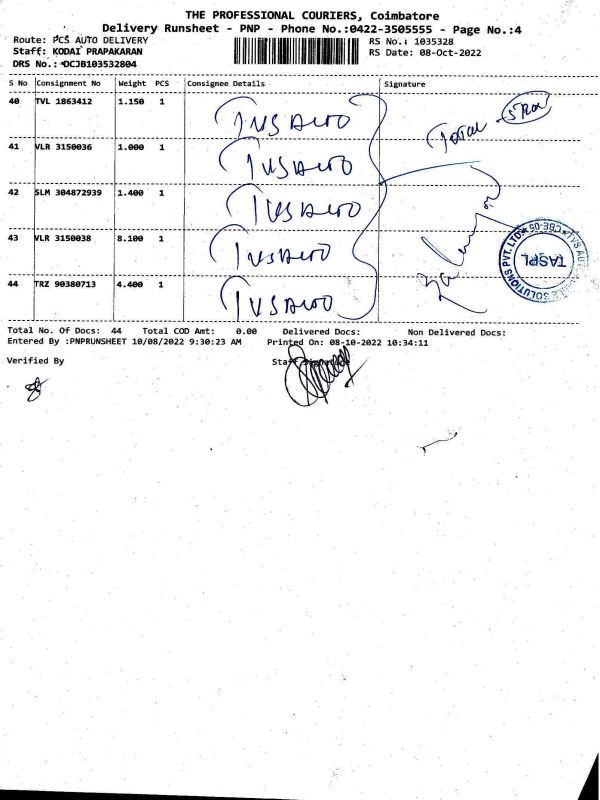 THE PROFESSIONAL COURIERS, Coimbatore
Delivery Runsheet - PNP - Phone No.:0422-3505555 - Page No.:4
Route: PCS AUTO DELIVERY RS No.: 1035328
Staff: KODAI PRAPAKARAN RS Date: 08-Oct-2022
DRS No.: DCJB103532804
S No Consignment No Weight PCS Consignee Details Signature
40 TVL 1863412 1.150 1 TVS Auto
Total - 5
41 VLR 3150036 1.000 1 TVS Auto
42 SLM 304872939 1.400 1 TVS Auto
43 VLR 3150038 8.100 1 TVS Auto
TASPL
SOLUTIONS PVT. LTD. ★ CBE-05 ★ TVS AUT
44 TRZ 90380713 4.400 1 TVS Auto
Total No. Of Docs: 44 Total COD Amt: 0.00 Delivered Docs: Non Delivered Docs:
Entered By :PNPRUNSHEET 10/08/2022 9:30:23 AM Printed On: 08-10-2022 10:34:11
Verified By Staff Signature